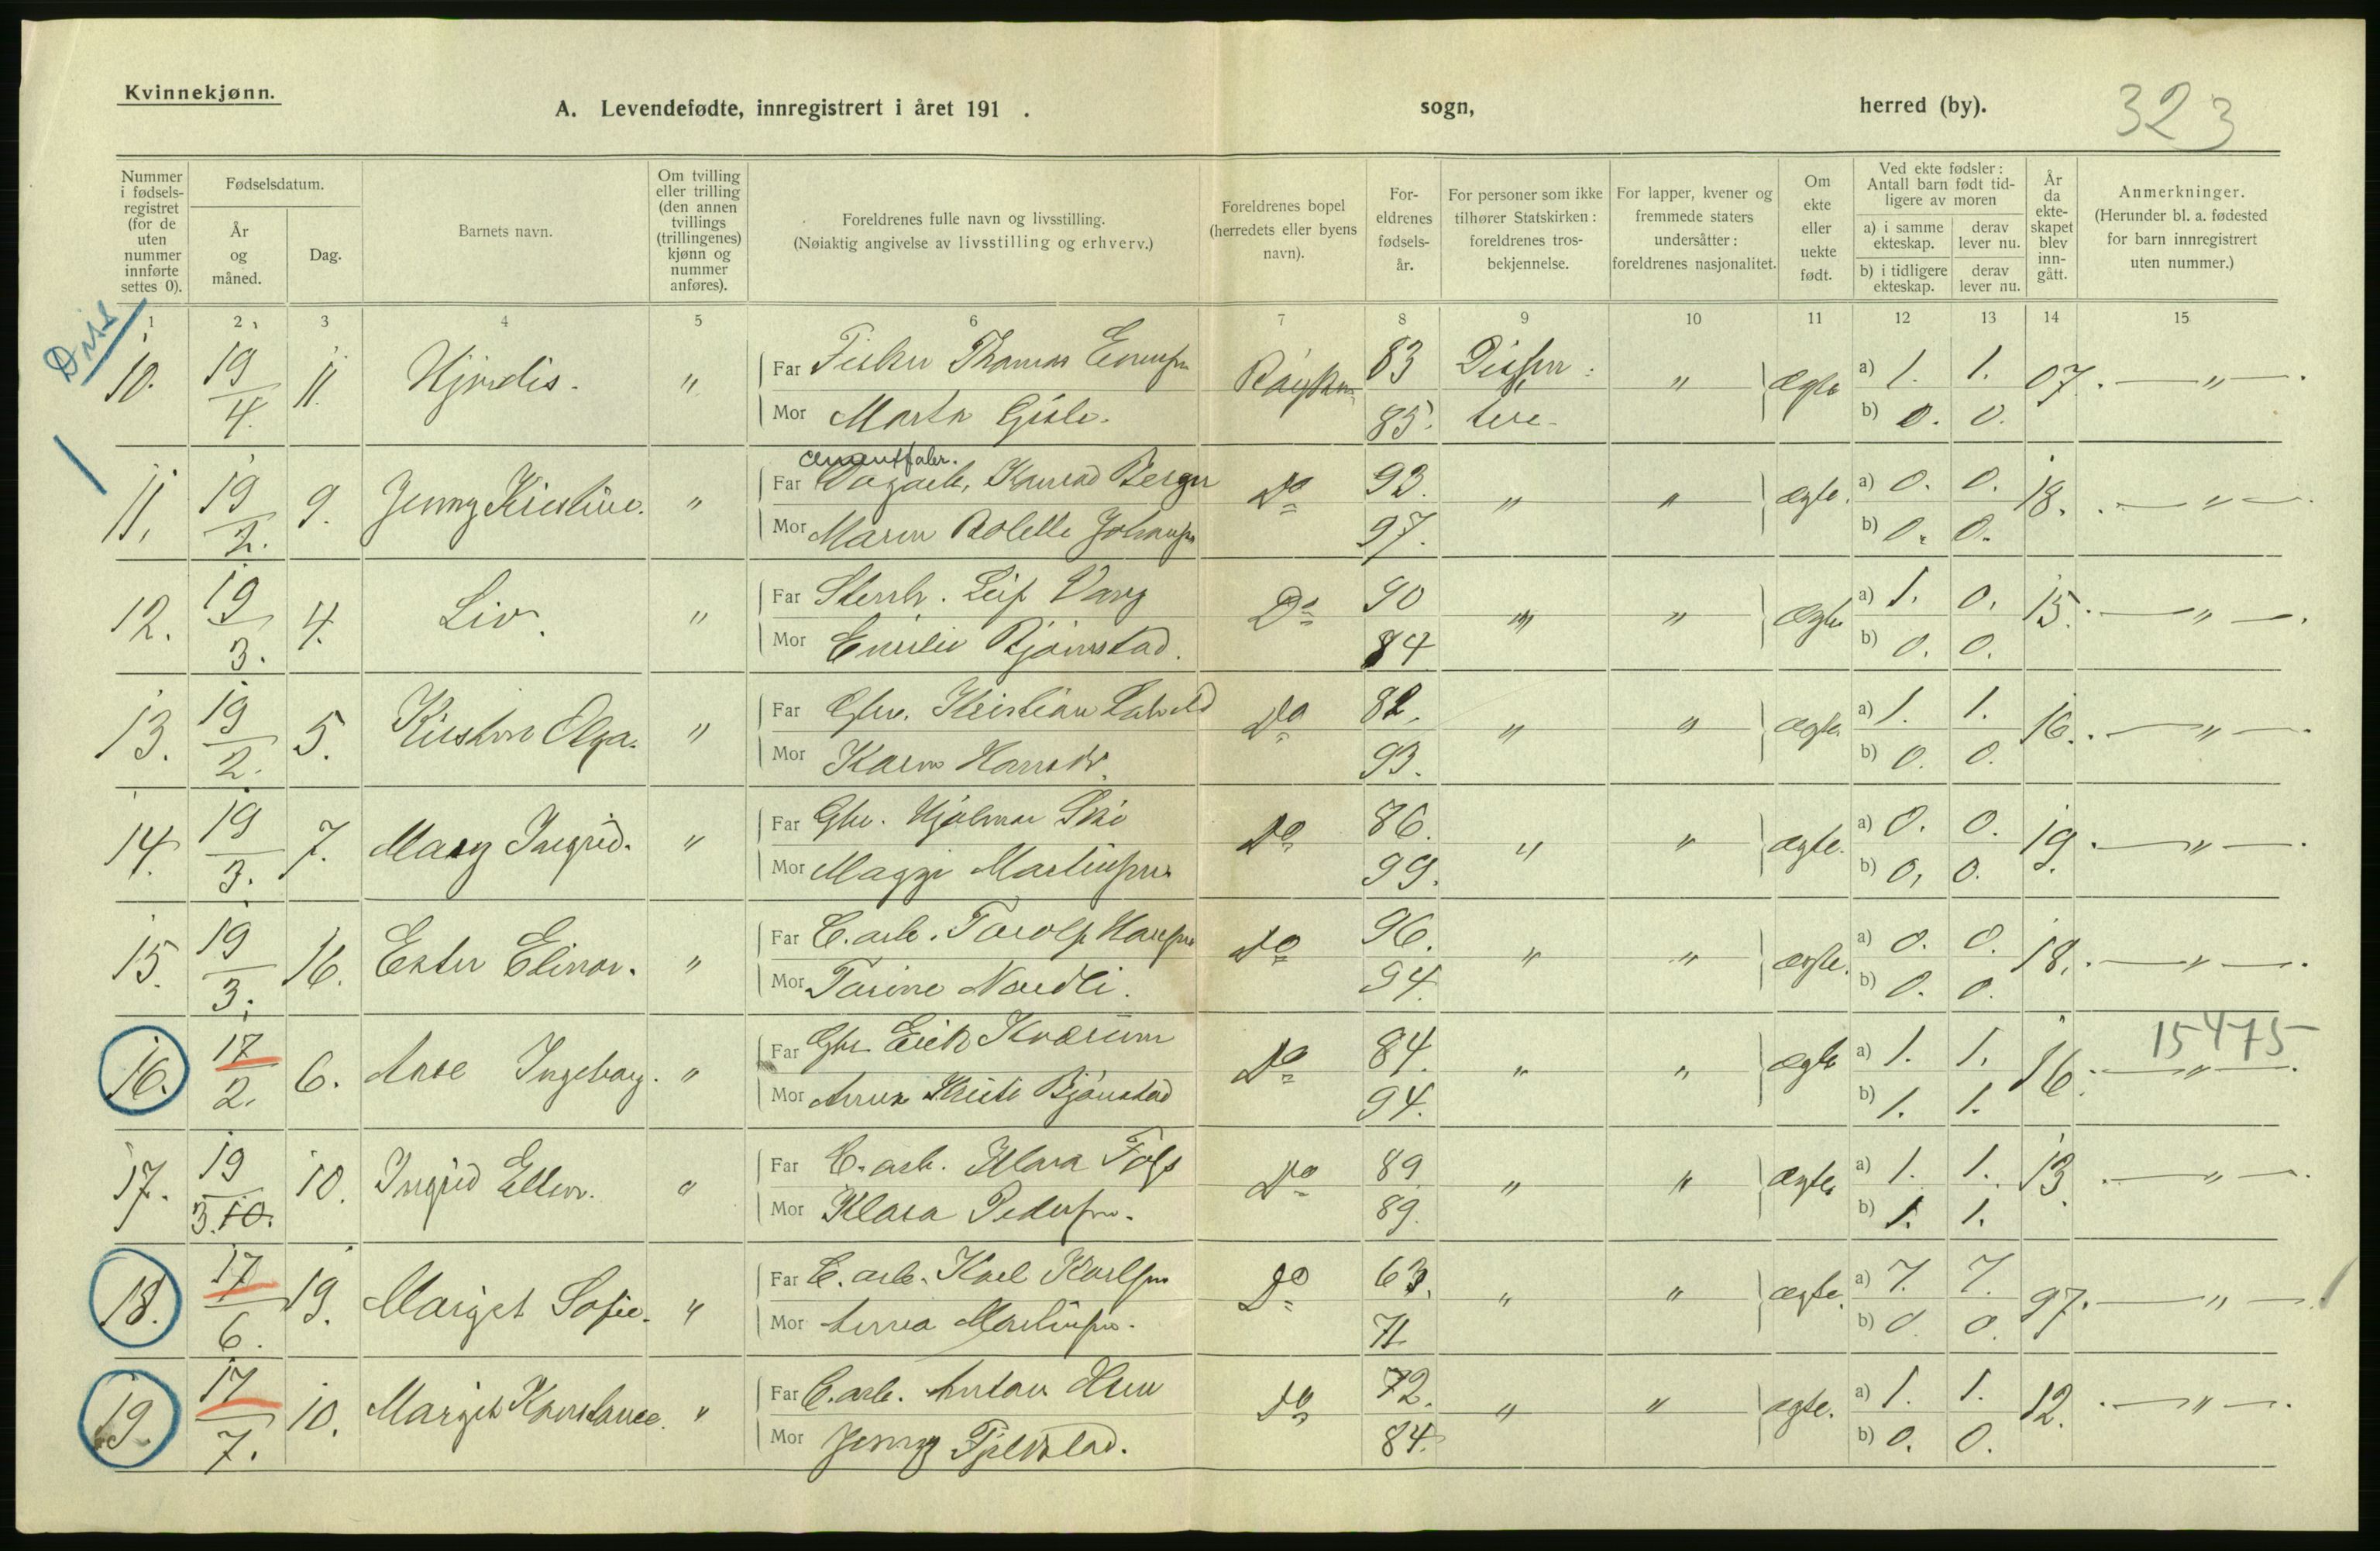 Kvinnekjønn.
A. Levendefødte, innregistrert i året 191 . sogn, herred (by). 323
Nummer i fødsels-registret (for de uten nummer innførte settes 0).
Fødselsdatum.
År og måned.
Dag.
Barnets navn.
Om tvilling eller trilling (den annen tvillings (trillingenes) kjønn og nummer anføres).
Foreldrenes fulle navn og livsstilling.
(Nøiaktig angivelse av livsstilling og erhverv.)
Foreldrenes bopel (herredets eller byens navn).
For-eldrenes fødsels-år.
For personer som ikke tilhører Statskirken: foreldrenes tros-bekjennelse.
For lapper, kvener og fremmede staters undersåtter: foreldrenes nasjonalitet.
Om ekte eller uekte født.
Ved ekte fødsler: Antall barn født tid-ligere av moren
a) i samme ekteskap. derav lever nu.
b) i tidligere ekteskap. derav lever nu.
År da ekte-skapet blev inn-gått.
Anmerkninger.
(Herunder bl. a. fødested for barn innregistrert uten nummer.)
1 2 3 4 5 6 7 8 9 10 11 12 13 14 15
Diss
10. 19/4 11. Hjørdis. " Far Fisker Thomas 83 Dissen: " Ægte a) 1. 1. 07. — " —
Mor Marta 85. tere b) 0. 0.
cementfabr.
11. 19/2. 9. Jenny Kristine. " Far Dagarb. Konrad Berger Do 93. " " ægte. a) 0. 0. 18. — " —
Mor Maren Bolette Johansen 97. b) 0. 0.
12. 19/3. 4. Liv. " Far Leif Vang Do 90 " " Ægte a) 1. 0. 15. — " —
Mor Emilie Bjørnstad. 84 b) 0. 0.
13. 19/2. 5. Kirsten Olga. " Far Gbr. Kristian Do 82. " " ægte a) 1. 1. 16. — " —
Mor Karen 93. b) 0. 0.
14. 19/3. 7. Mary Ingrid. " Far Gbr. Hjalmar Do 86. " " ægte. a) 0. 0. 19. — " —
Mor Maggi Martinsen 99. b) 0, 0.
15. 19/3. 16. Ester Elinor. " Far C. arb. Torolf Hansen Do 96. " " ægte. a) 0. 0. 18. — " —
Mor Torine Nordli. 94. b) 0. 0.
16. 17/2. 6. Aase Ingeborg. " Far Gbr Erik Kværum Do 84. " " ægte a) 1. 1. 16. — " — 15475
Mor Anna Bjønstad 94. b) 1. 1.
17. 19/3.10. 10. Ingrid Ellen. " Far C. arb. Do 89 " " Ægte a) 1. 1. 13. — " —
Mor Klara Pedersen. 89. b) 1. 1.
18. 17/6. 19. Margit Sofie. " Far C. arb. Karl Karlsen Do 63. " " ægte. a) 7. 7. 97. — " —
Mor Anna Martinsen. 71 b) 0 0.
19. 17/7. 10. Margit Konstance. " Far C. arb. Anton Do 72. " " ægte. a) 1. 1. 12. — " —
Mor Jenny Fjeldstad. 84. b) 0. 0.